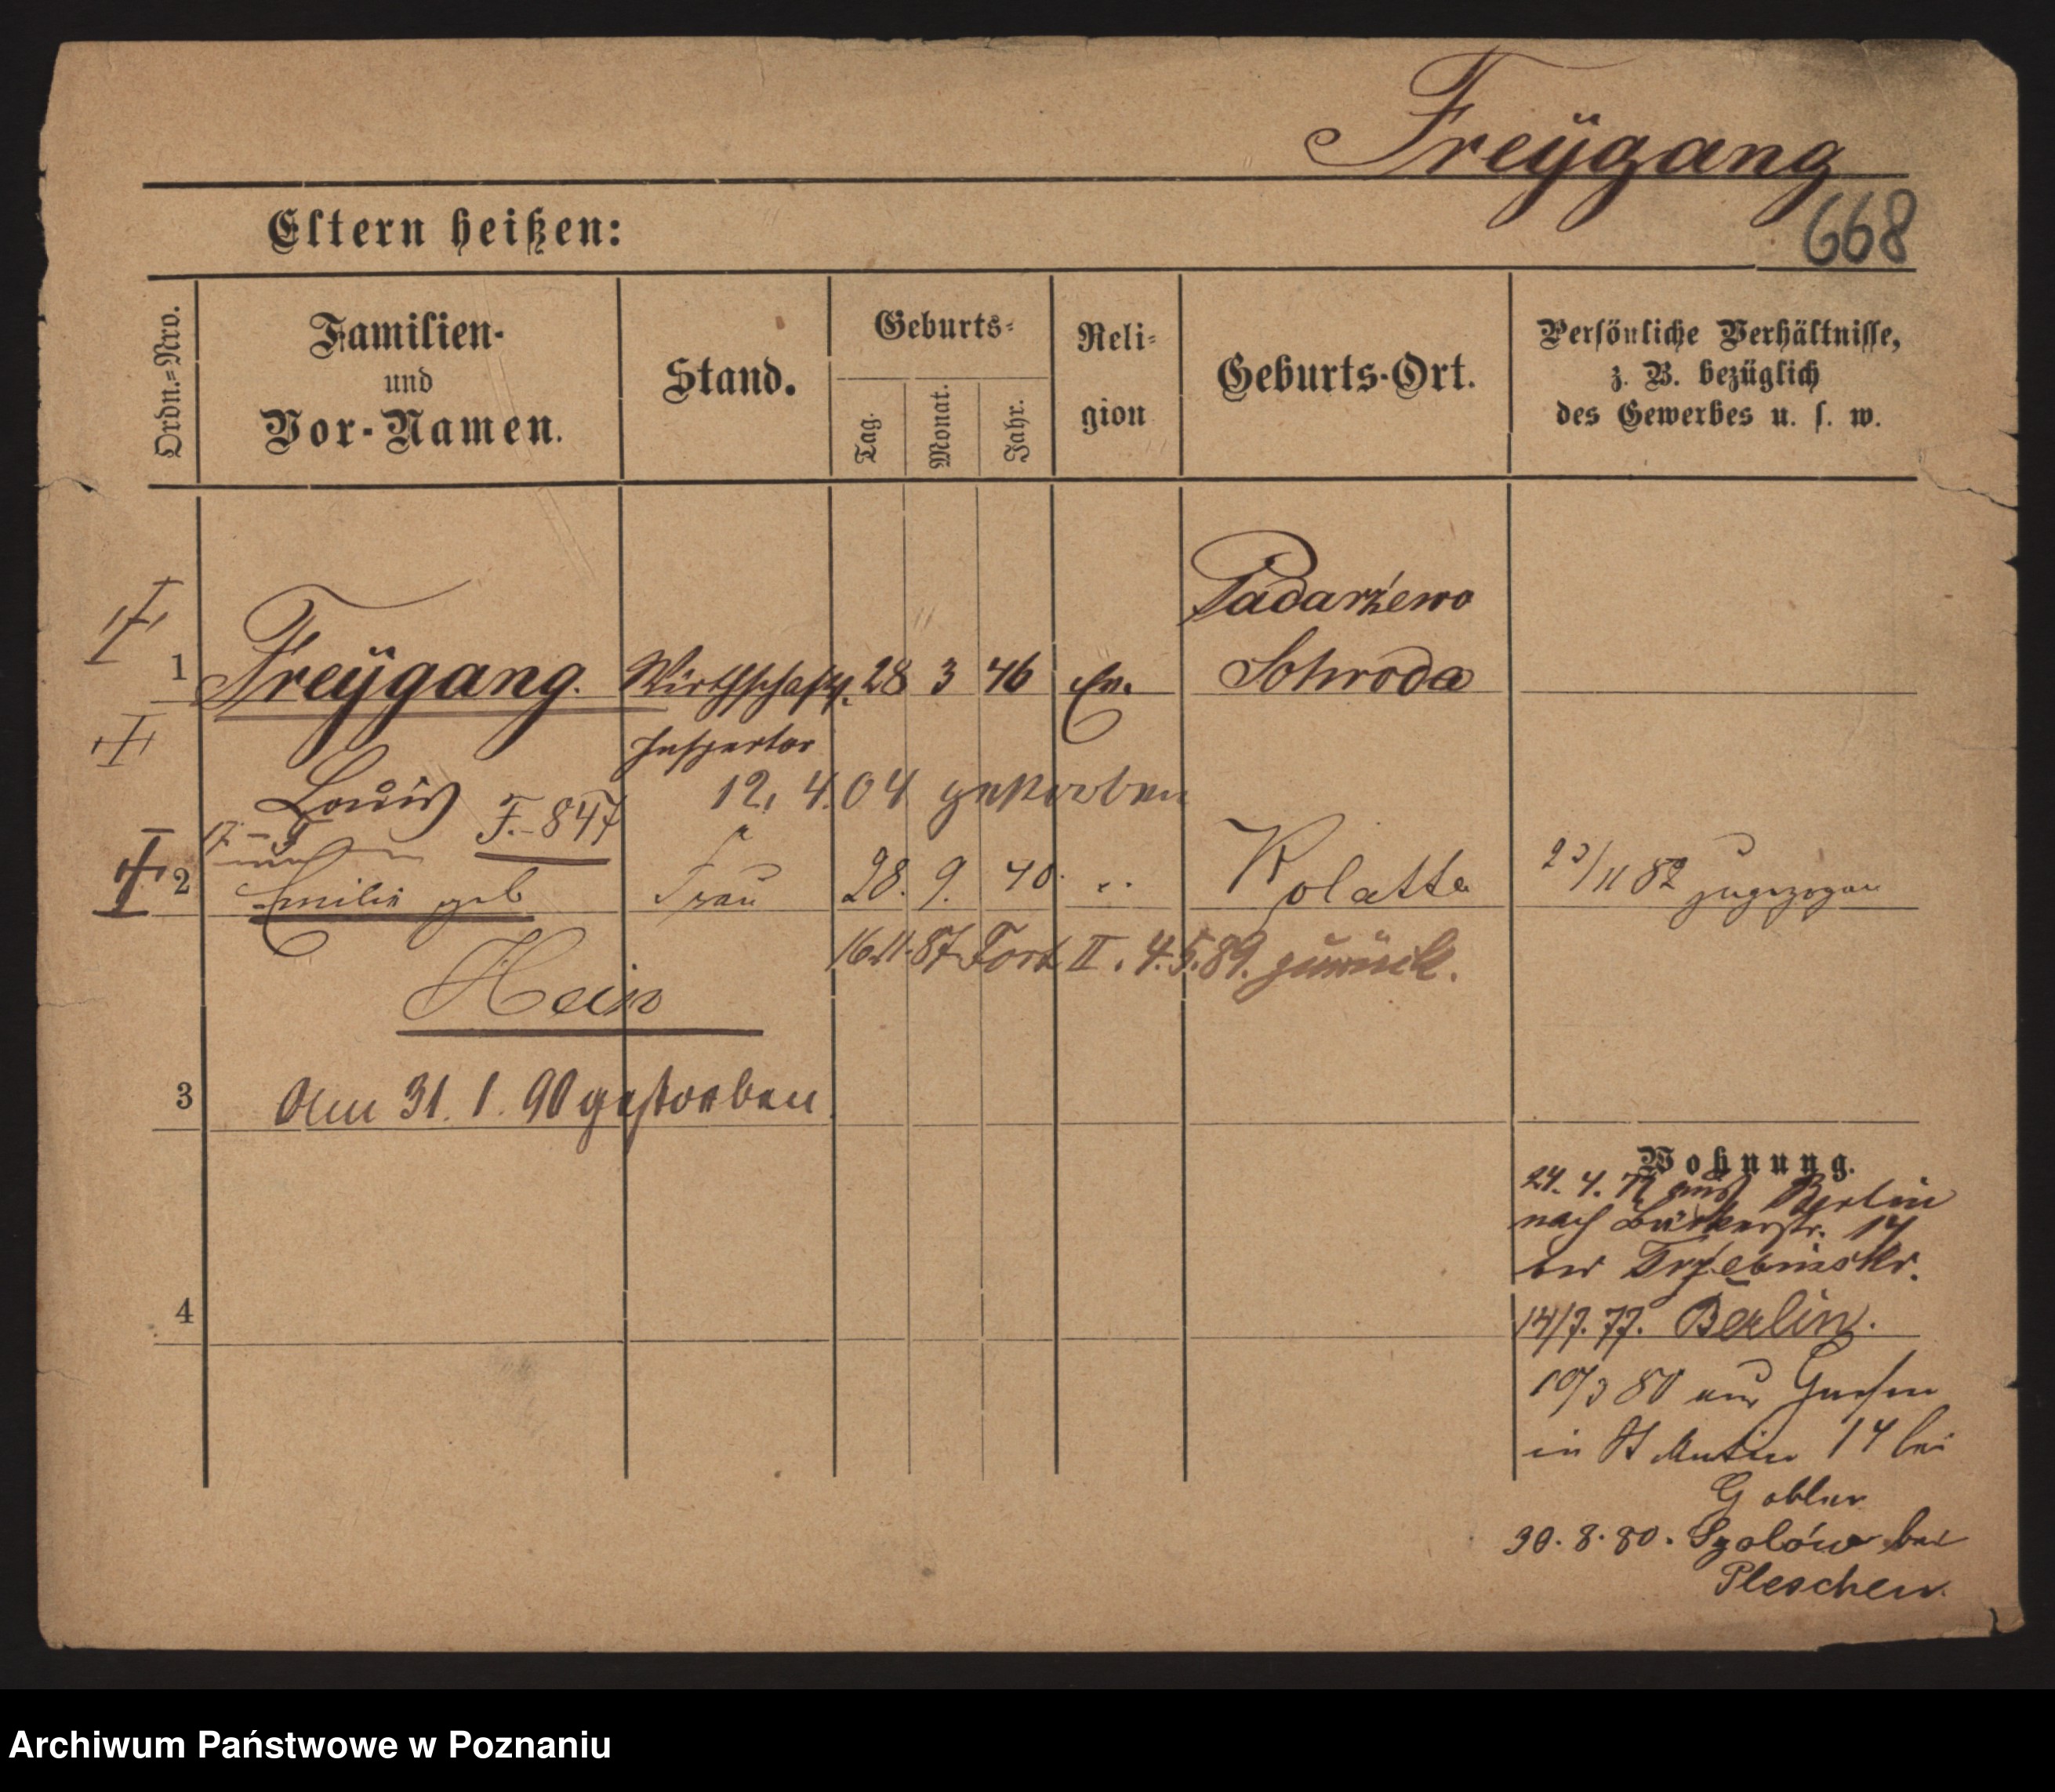 Freÿgang
668
Eltern heißen:
Ordn.=Nro.
Familien-
und
Vor-Namen.
Stand.
Geburts-
Tag.
Monat.
Jahr.
Reli-
gion
Geburts-Ort.
Persönliche Verhältnisse,
z. B. bezüglich
des Gewerbes u. s. w.
Padarżewo
1 Freÿgang. Wirthschafts. 28 3 46 Ev. Schroda
Inspector
Louis F.-847 12. 4. 04 gestorben
2 Emilie geb Frau 28. 9. 40 " Kolatta 23/11 82 zugezogen
16.11.87 Fort II. 4.5.89. zurück.
Hein
3 Am 31. 1. 90 gestorben.
Wohnung.
24. 4. 77 aus Berlin
nach Bäckerstr. 14
bei
4
14/7. 77. Berlin.
10/3 80 aus Gnesen
in St Martin 14 bei
Gobler
30. 8. 80. bei
Pleschen.
Archiwum Państwowe w Poznaniu